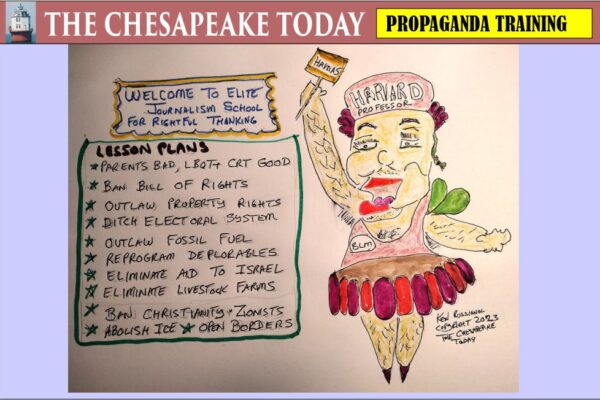 THE CHESAPEAKE TODAY
PROPAGANDA TRAINING
WELCOME TO ELITE
JOURNALISM SCHOOL
FOR RIGHTFUL THANKING
LESSON PLANS
★PARENTS BAD, LBQT+ CRT GOOD
★BAN BILL OF RIGHTS
★OUTLAW PROPERTY RIGHTS
★DITCH ELECTORAL SYSTEM
★OUTLAW FOSSIL FUEL
★REPROGRAM DEPLORABLES
★ELIMINATE AID TO ISRAEL
★ELIMINATE LIVESTOCK FARMS
★BAN CHRISTIANITY - ZIONISTS
★ABOLISH ICE ★ OPEN BORDERS
HAMAS
HARVARD
PROFESSOR
BLM
KEN ROSSIGNOL
COPYRIGHT 2023
THE CHESAPEAKE
TODAY